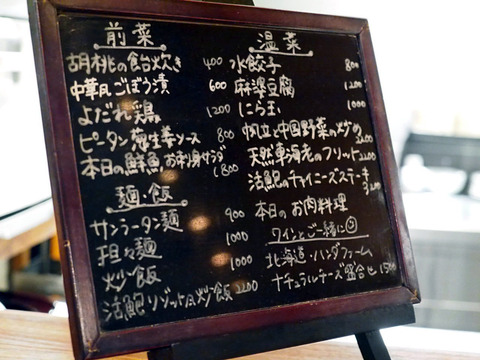 前菜
胡桃の飴炊き 400
中華風ごぼう漬 600
よだれ鶏 1200
ピータン 生姜ソース 800
本日の鮮魚お刺身サラダ 1800
麺・飯
サンラータン麺 900
担々麺 1000
炒飯 1000
活鮑リゾット風炒飯 2200
温菜
水餃子 800
麻婆豆腐 1200
にら玉 1000
帆立と中国野菜の炒め 2200
天然車海老のフリット 2200
活鮑のチャイニーズステーキ 3200
本日のお肉料理
ワインとご一緒に
北海道・ハンダファーム
ナチュラルチーズ盛合せ 1500